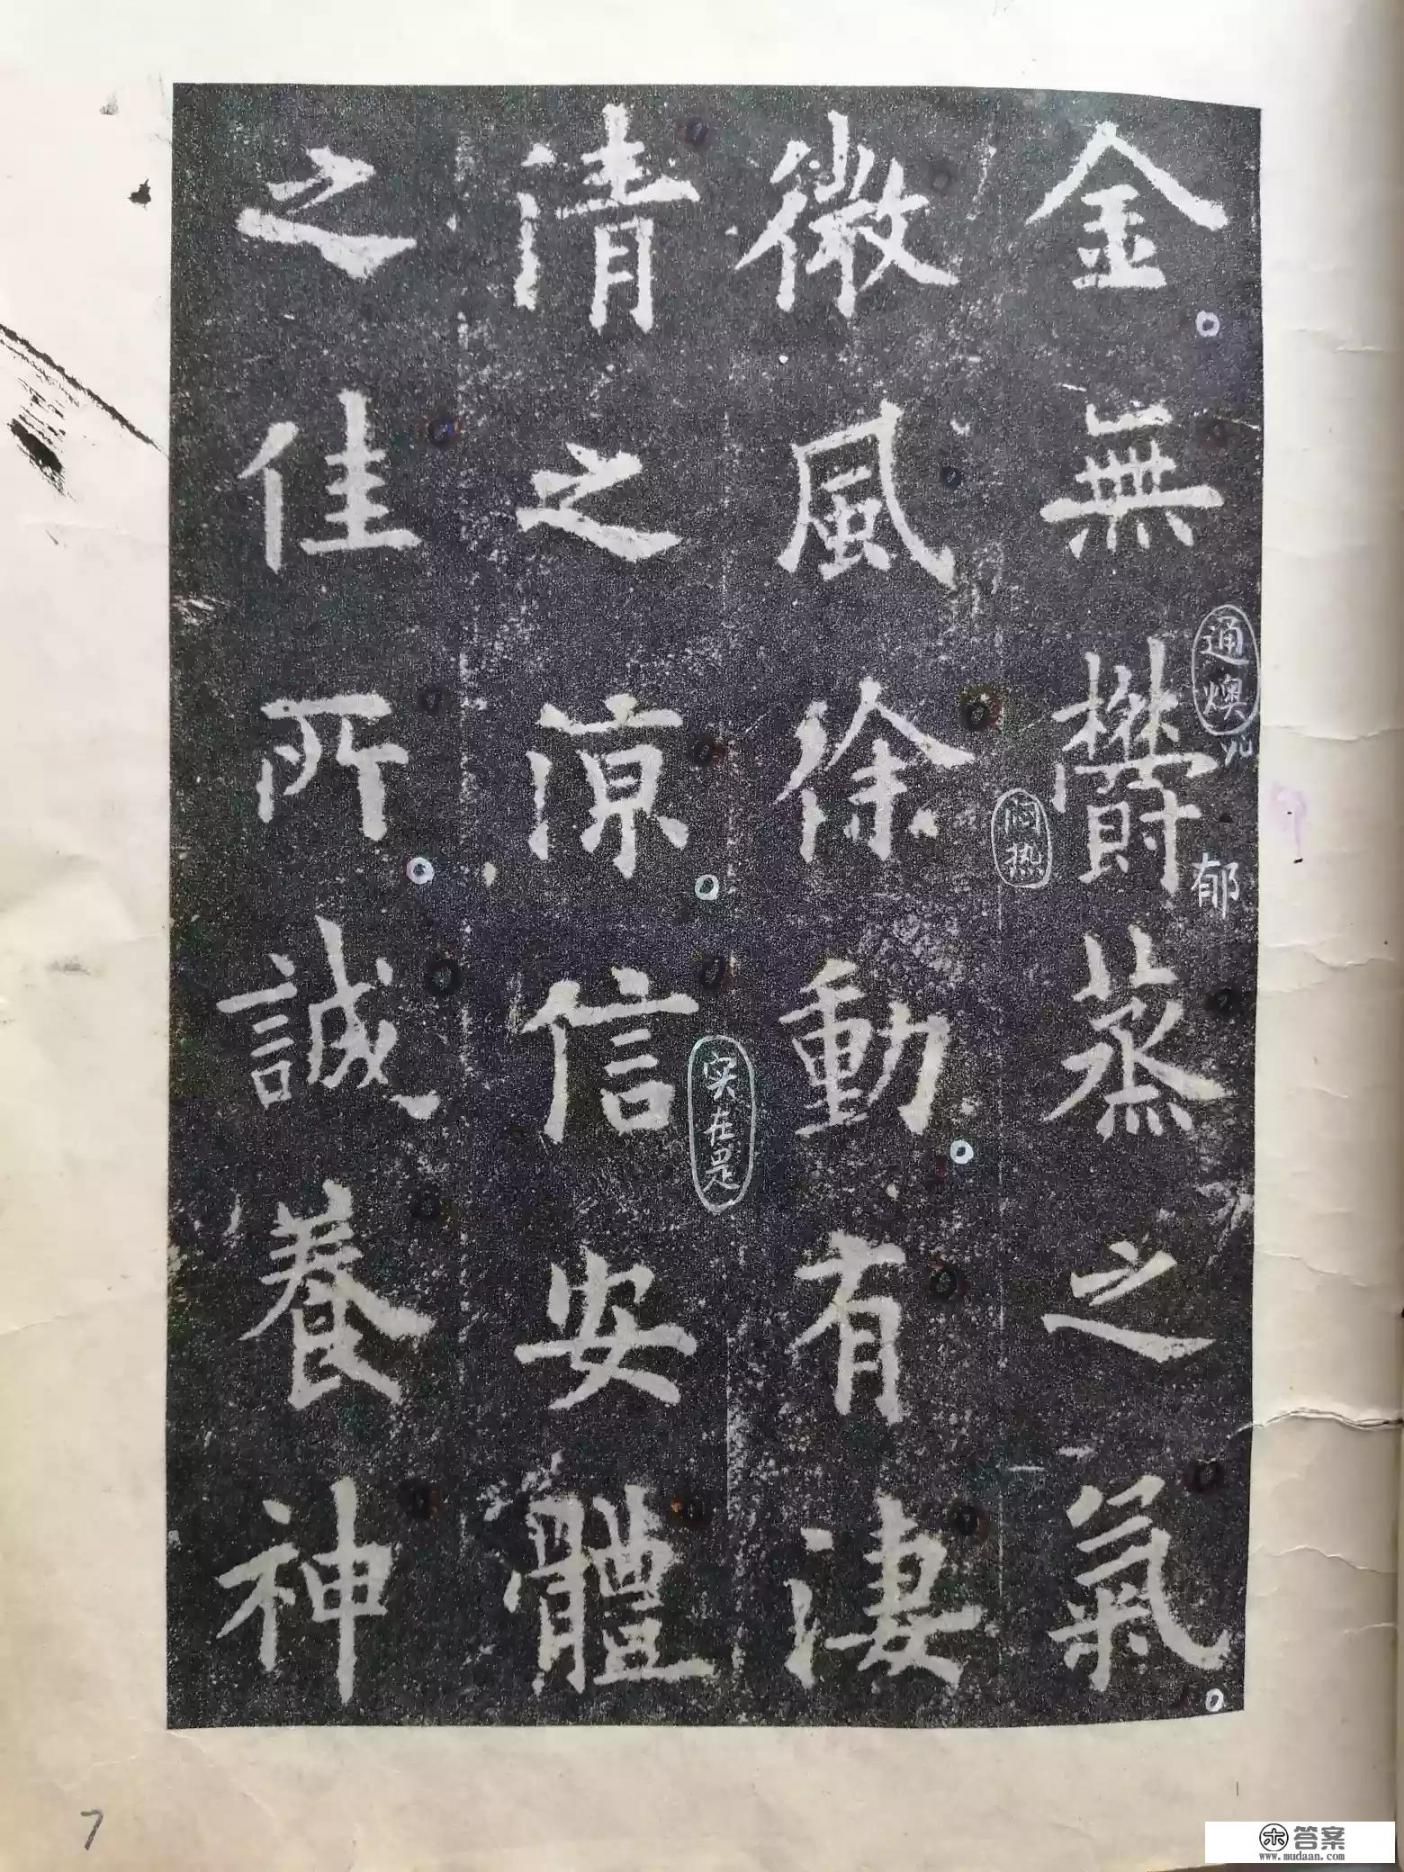 金無欝蒸之氣
通燠
yu
郁
闷热
微風徐動有淒
清之涼信安體
实在是
之佳所誠養神
7
答案
www.mudaan.com